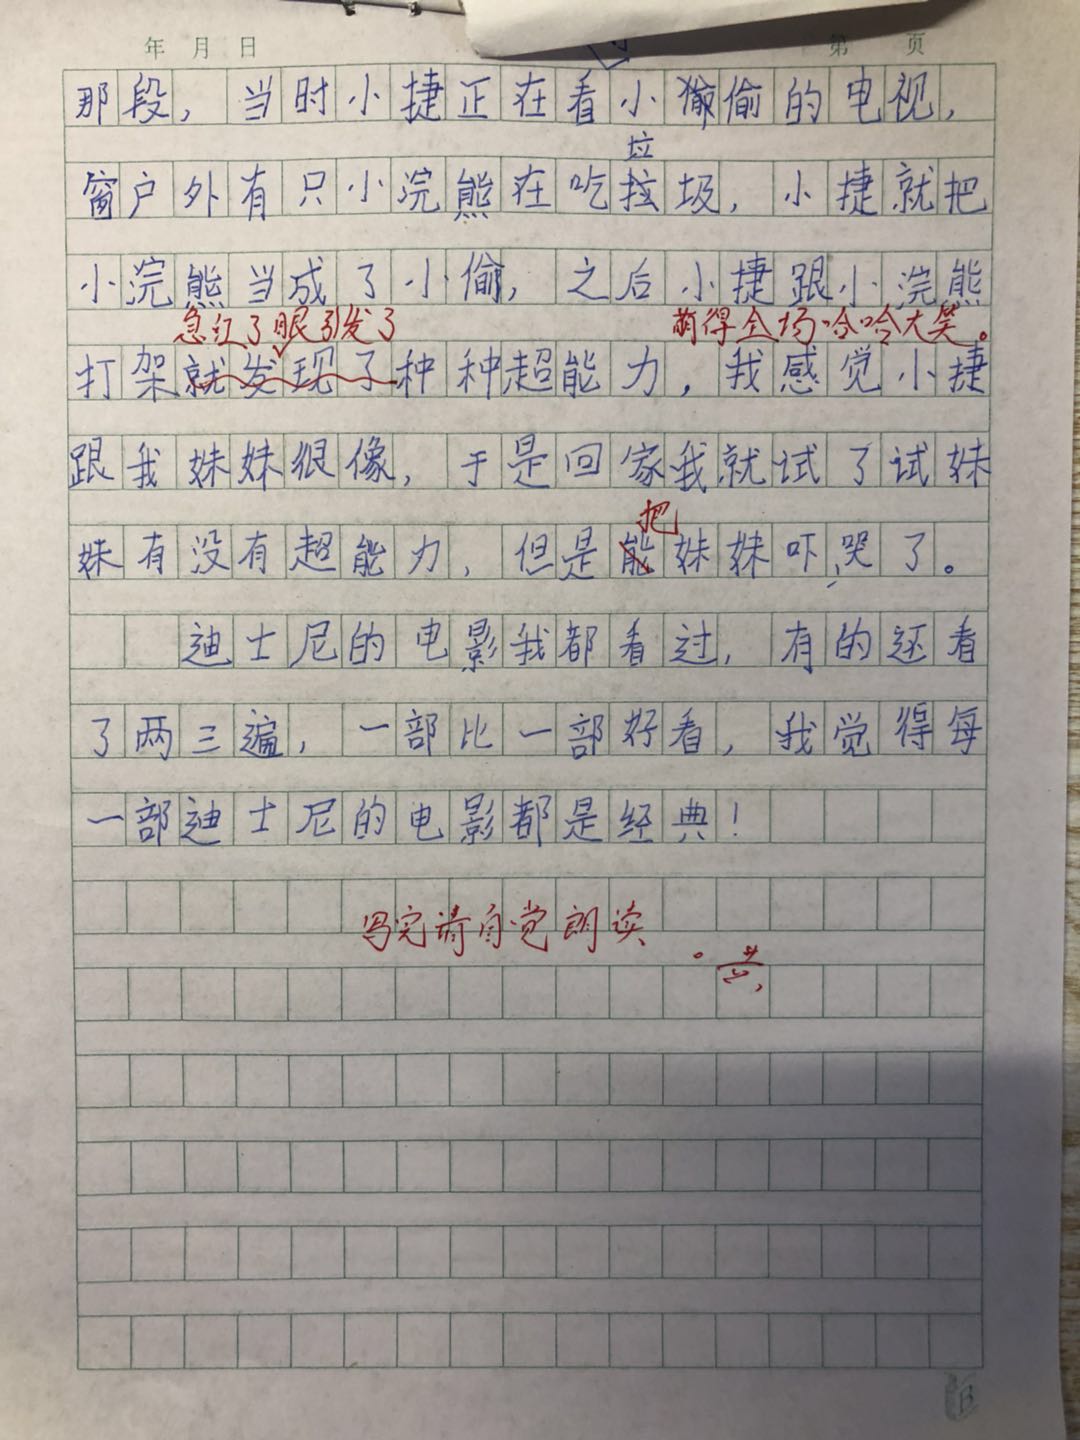 年 月 日
第 页
那段，当时小捷正在看小偷的电视，
垃
窗户外有只小浣熊在吃拉圾，小捷就把
小浣熊当成了小偷，之后小捷跟小浣熊
急红了眼引发了 萌得全场哈哈大笑。
打架就发现了种种超能力，我感觉小捷
跟我妹妹很像，于是回家我就试了试妹
把
妹有没有超能力，但是能妹妹吓哭了。
迪士尼的电影我都看过，有的还看
了两三遍，一部比一部好看，我觉得每
一部迪士尼的电影都是经典！
写完请自觉朗读